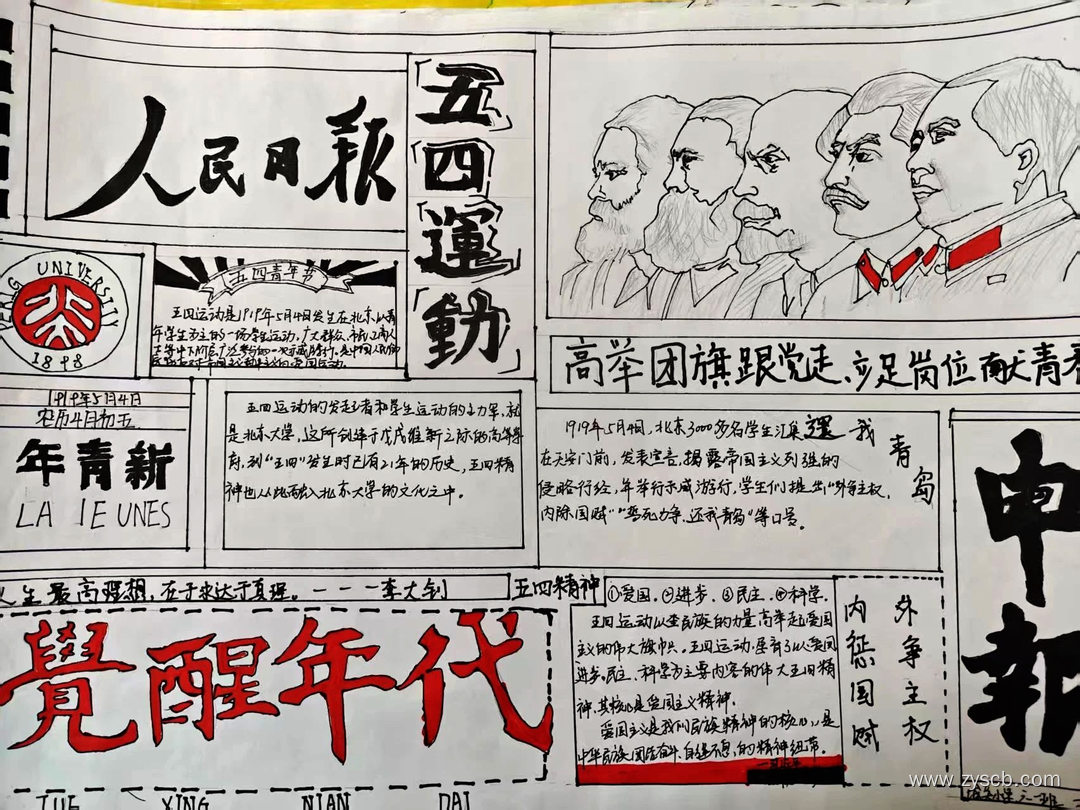 人民日报
五四運動
PEKING UNIVERSITY
1898
五四青年节
五四运动是1919年5月4日发生在北京,以青
年学生为主的一场学生运动,广大群众、市民、工商人
高举团旗跟党走、立足岗位献大青春
1919年5月4日
农历4月初五
年青新
LA JEUNES
五四运动的发起者和学生运动的主力军,就
是北京大学,这所创建于戊戌维新之际的高等学
府,到“五四”发生时已有21年的历史,五四精
神也从此融入北京大学的文化之中。
1919年5月4日,北京3000多名学生汇集
在天安门前,发表宣言,揭露帝国主义列强的
侵略行径,年举行示威游行,学生们提出“外争主权,
内除国贼”“誓死力争,还我青岛”等口号。
還我青岛
申報
人生最高理想,在于求达于真理。---李大钊
覺醒年代
JUE XING NIAN DAI
五四精神
①爱国,②进步,③民主,④科学。
五四运动以全民族的力量高举起爱国
主义的伟大旗帜。五四运动,孕育了以爱国
进步,民主,科学为主要内容的伟大五四精
神,其核心是爱国主义精神。
爱国主义是我们民族精神的核心,是
中华民族团结奋斗、自强不息,的精神纽带。
外争主权
内惩国贼
www.zyscb.com